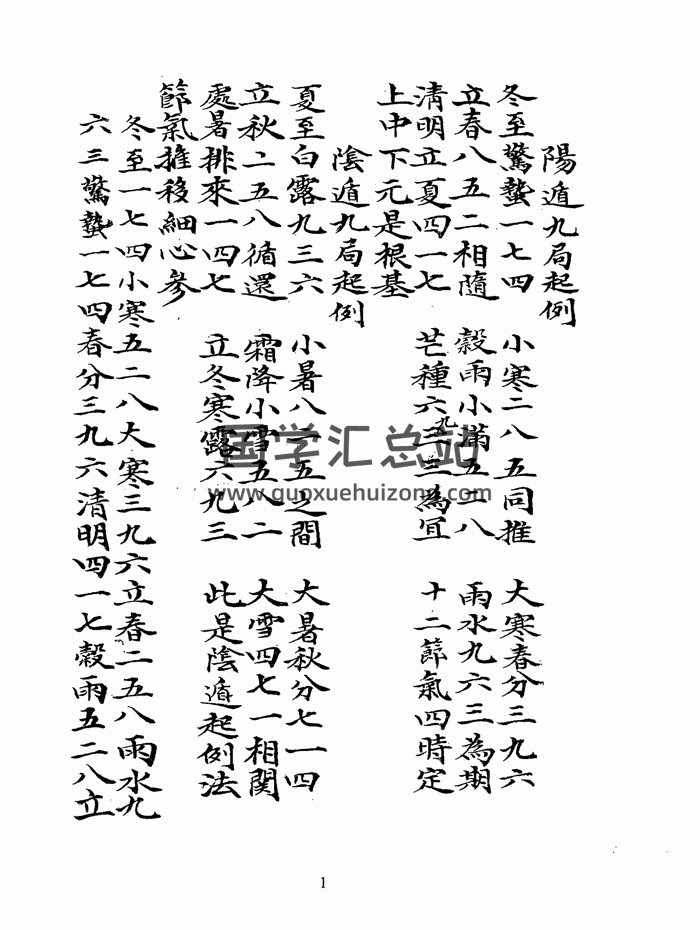 陽遁九局起例
冬至驚蟄一七四 小寒二八五同推 大寒春分三九六
立春八五二相隨 穀雨小滿五二八 雨水九六三為期
清明立夏四一七 芒種六三九三為宜 十二節氣四時定
上中下元是根基
陰遁九局起例
夏至白露九三六 小暑八二五之間 大暑秋分七一四
立秋二五八循還 霜降小雪五八二 大雪四七一相関
處暑排來一四七 立冬寒露六九三 此是陰遁起例法
節氣推移細心參
冬至一七四小寒五二八大寒三九六立春二五八雨水九
六三驚蟄一七四春分三九六清明四一七穀雨五二八立
国学汇总站
www.guoxuehuizong.com
1